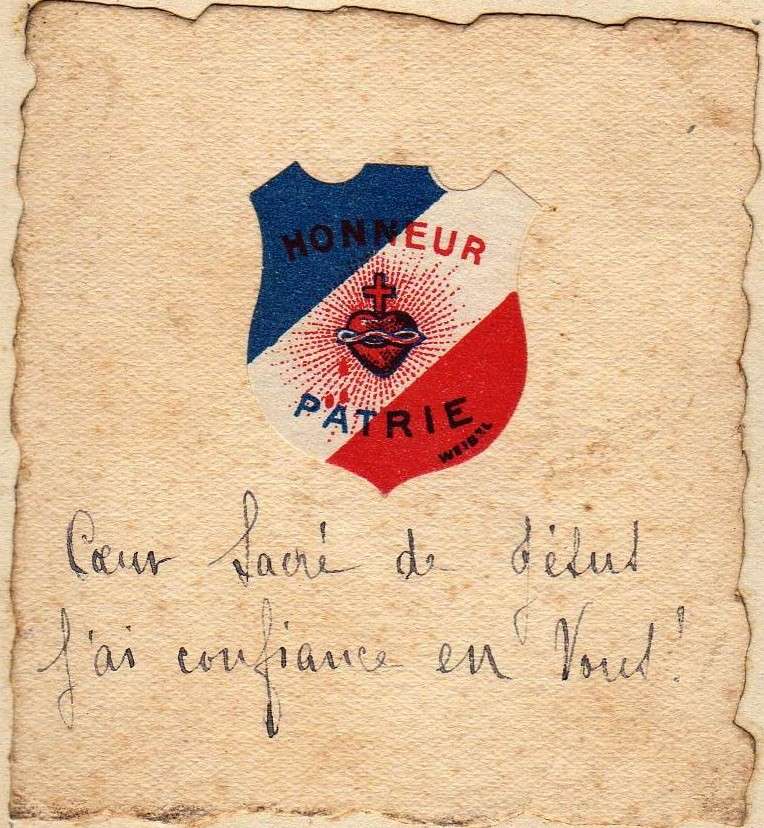 HONNEUR
PATRIE
Cœur Sacré de Jésus
J'ai confiance en Vous!